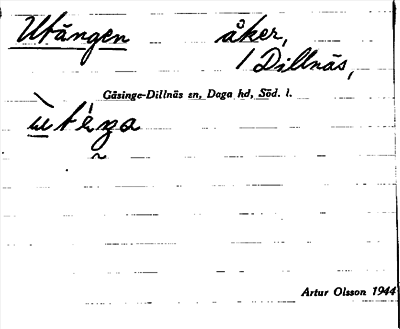 Utängen åker,
1 Dillnäs,
Gåsinge-Dillnäs sn, Daga hd, Söd. l.
Artur Olsson 1944